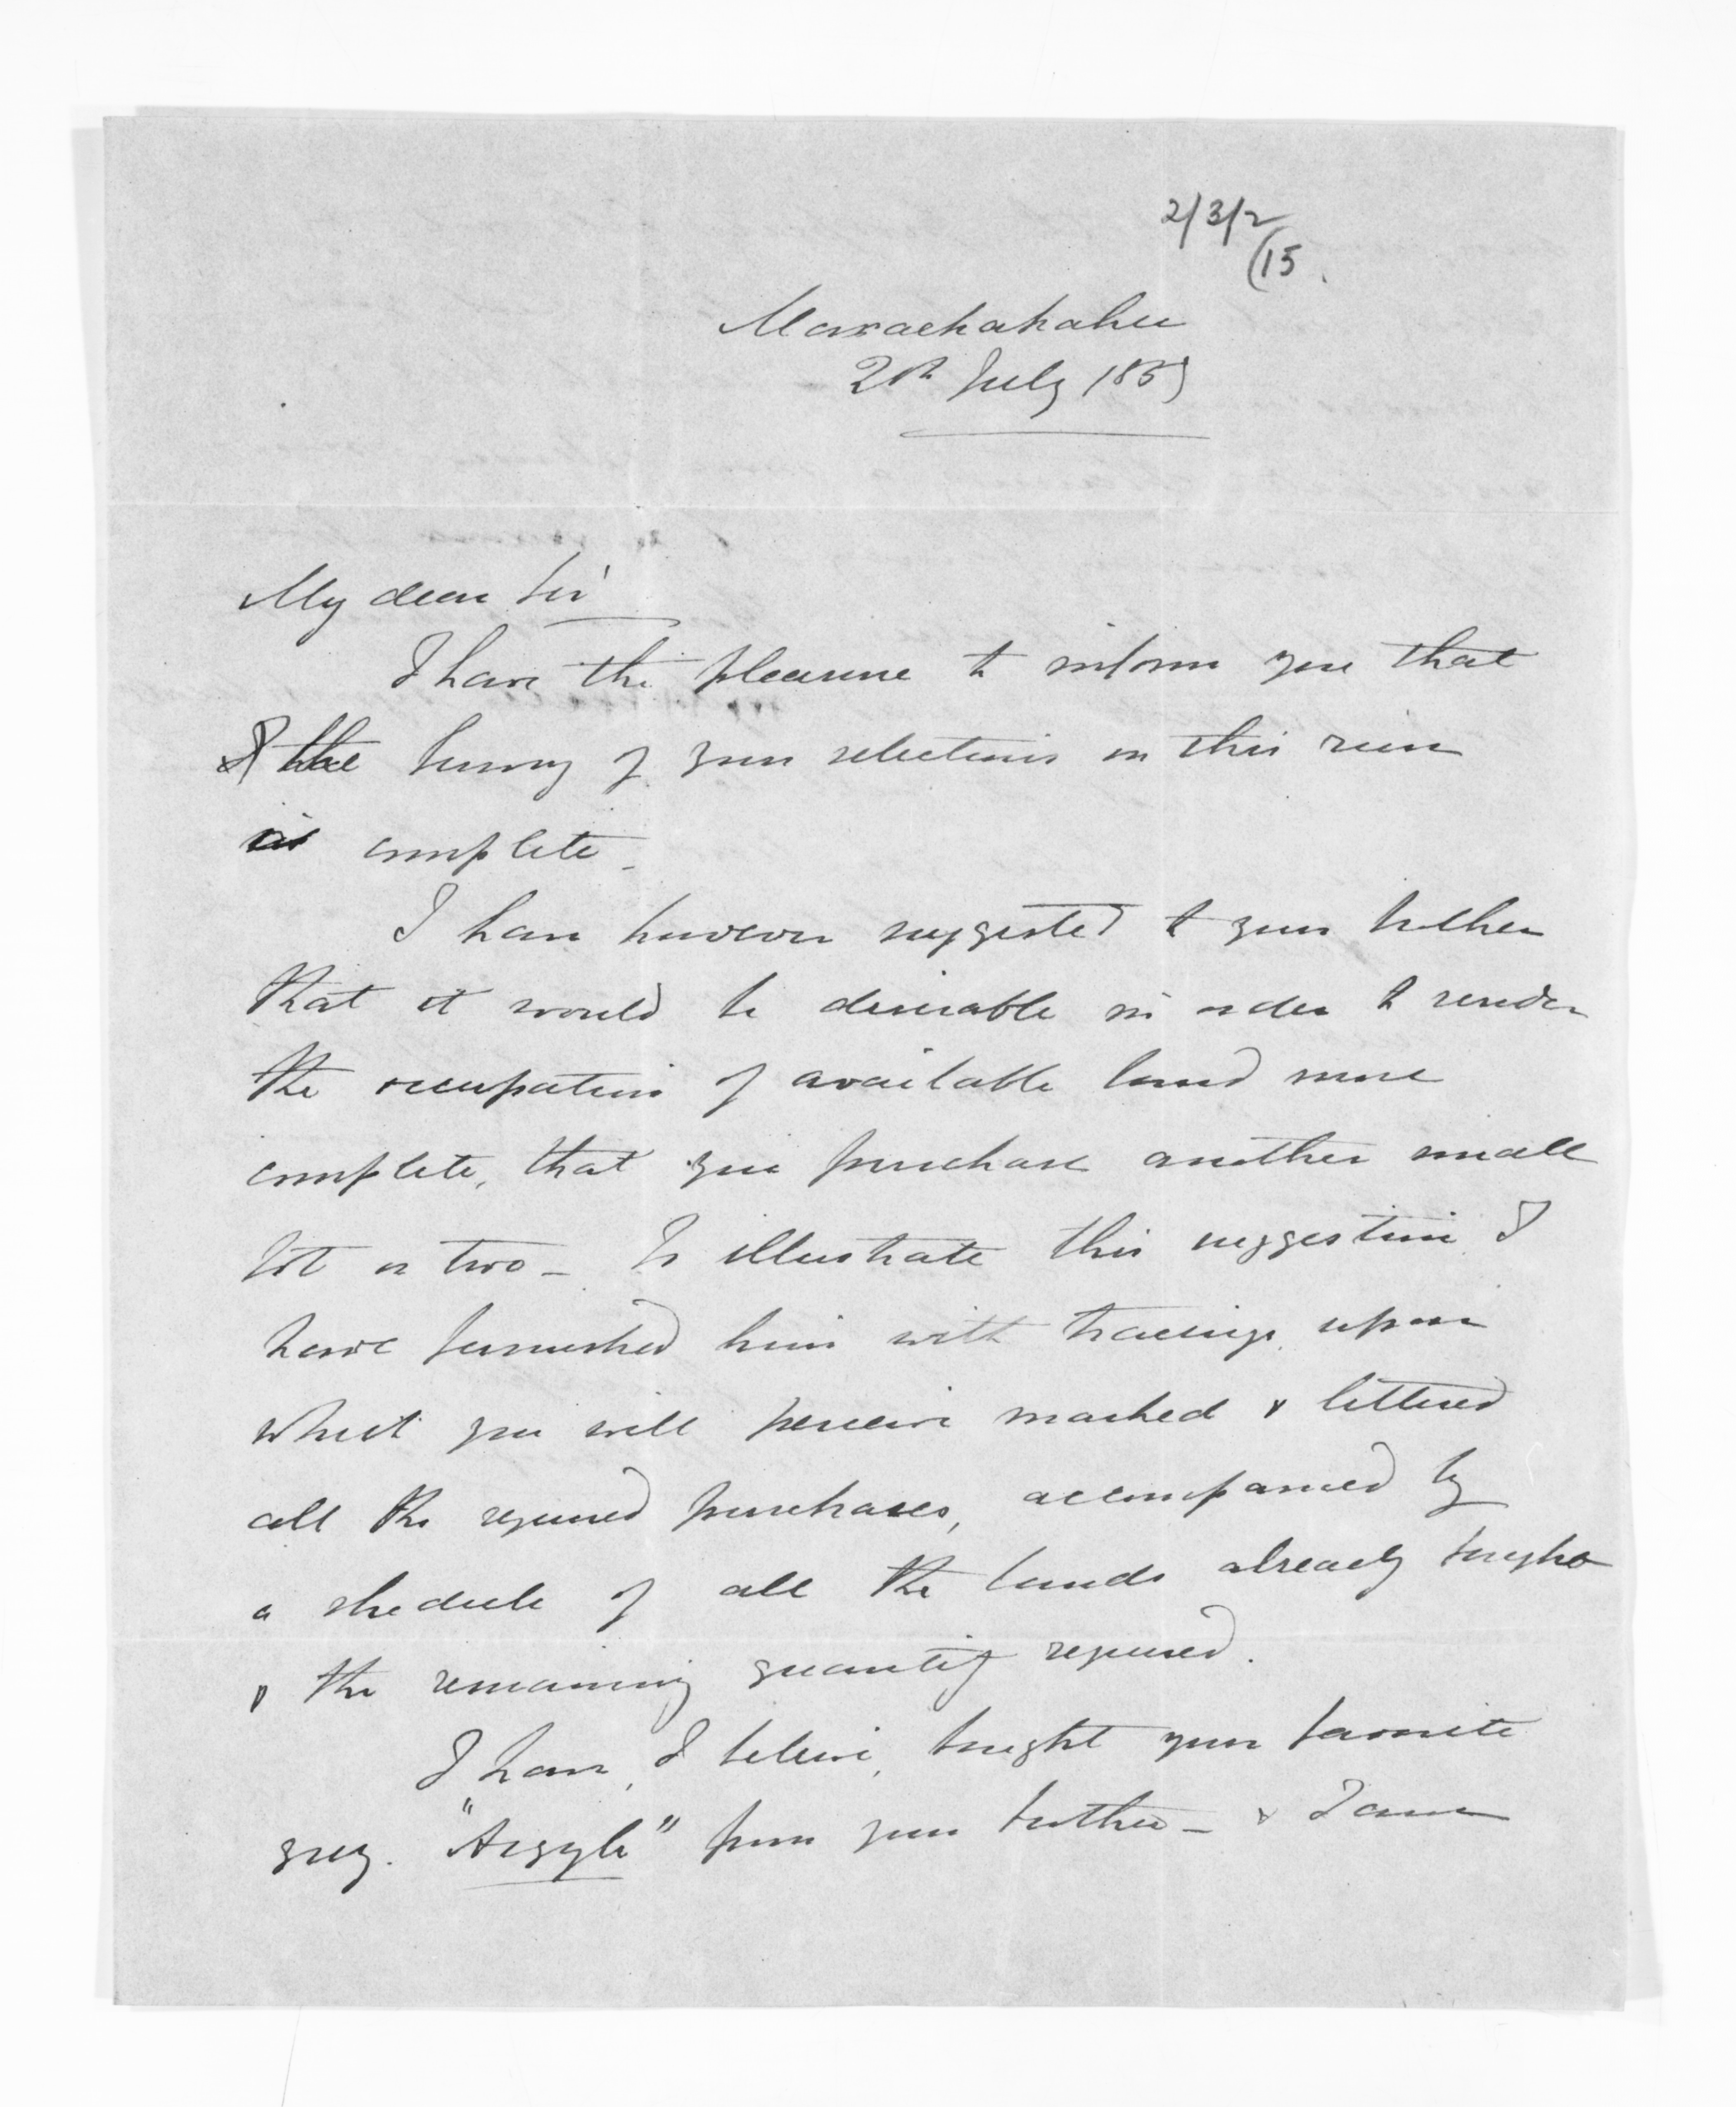 2/3/2
(15.
Maraekakahu
2th July 1859
My dear Sir
I have the pleasure to inform you that
the survey of your selections on this run
is complete_
I have however suggested to your brother
that it would be desirable in order to render
the occupation of available land more
complete, that you purchase another small
lot or two_ To illustrate this suggestion I
have furnished him with tracings, upon
which you will perceive marked & lettered
all the required purchases, accompanied by
a shedule of all the lands already bought
& the remaining quantity required.
I have, I believe, bought your favorite
grey. "Argyle" from your brother_ & I am